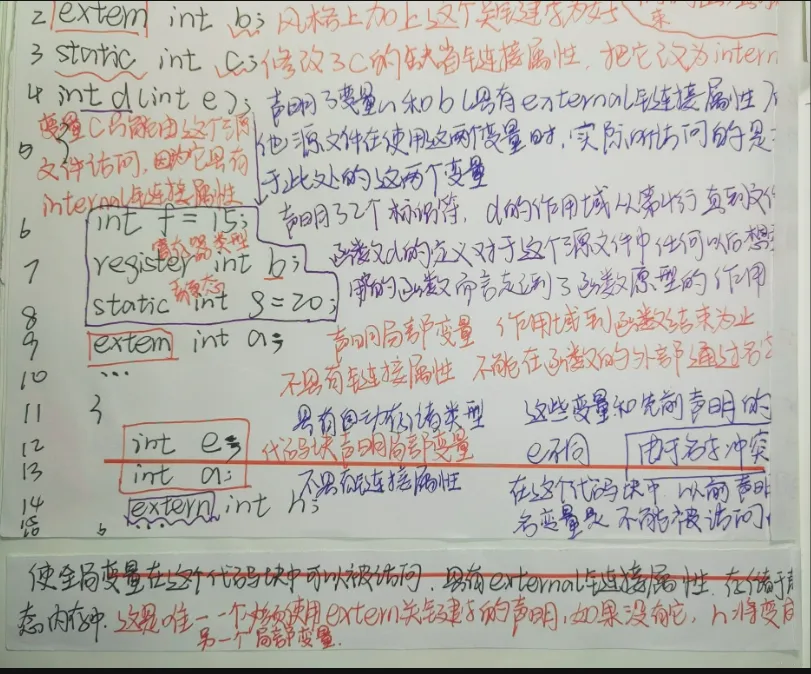 2 extern int b; 风格上加上这个关键字为好
3 static int c; 修改了C的缺省链接属性，把它改为intern
4 int d(int e); 声明了变量a和b具有external链接属性
变量C只能由这个源
5 { 他源文件在使用这两个变量时，实际所访问的是
文件访问，因为它具有 于此处的这两个变量
internal链接属性
6 int f = 15; 声明了2个标识符，d的作用域从第4行直到文件
寄存器类型
7 register int b; 函数d的定义对于这个源文件中任何以后想
静态
8 static int g = 20; 用的函数而言起到了函数原型的作用
9 extern int a; 声明局部变量 作用域到函数结束为止
10 ... 不具有链接属性 不能在函数的外部通过名字
11 } 具有自动存储类型 这些变量和先前声明的
12 int e; 代码块声明局部变量 e不同 由于名字冲突
13 int a; 不具有链接属性 在这个代码块中 以前声明
14 extern int h; 名变量是不能被访问
15
16
使全局变量在这个代码块中可以被访问，具有external链接属性，存储于静
态内存中. 这是唯一一个必须使用extern关键字的声明，如果没有它，h将变成
另一个局部变量.